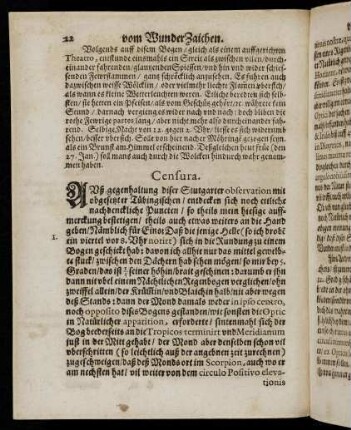 22 vom WunderZaichen.
Volgends auff disem Bogen / gleich als einem auffgerichten
Theatro, entstunde einsmahls ein Streit als zwischen vilen / durch-
einander fahrenden / glantzenden Spiessen / vnd hin vnd wider schies-
senden Fewrflammen / ganz schröcklich anzusehen. Es fuhren auch
dazwischen weisse Wölcklin / oder vilmehr liechte Flammen / überseit /
als wann es kleine Wetterleuchten weren. Etliche beredten sich selb-
sten / sie hetten ein Pfeisen / als vom Geschütz gehört / es währete kein
Stund / darnach vergieng es wider nach vnd nach: doch bliben die
rothe Fewrige partes lang / aber nicht mehr also durcheinander fah-
rend. Selbige Nacht vmb 12. gegen 1. Vhr / liesse es sich widerumb
sehen / besser übersich. Seie von hier nacher Möhringen gezogen seyn.
als ein Brunst am Himmel erscheinend. Deßgleichen heut früe (den
27. Jan.) soll mans auch durch die Wolcken hindurch wahr genom-
men haben.
Censura.
AVß gegenhaltung diser Stutgarter observation mit
obgesetzter Tübingischen / entdecken sich noch etliche
nachdenckliche Puncten / so theils mein hiesige auff-
merckung besterigen / theils auch etwas weiters an die Hand
geben / Nämblich für Eins: Daß die jenige Helle (so ich drobē
1. ein viertel vor 8. Vhr notirt) sich in die Rundung zu einem
Bogen geschickt hab: davon ich allhie nur das mittel gewelb-
te stuck / zwischen den Dächern hab sehen mögen / so mir bey 5.
Graden / das ist / seiner höhin / brait geschinen: darumb er ihn
dann nit übel einem Nächtlichen Regenbogen verglichen / ohn
zweiffel allein der Rüstin / vnd Blaichin halb / nit aber wegen
deß Stands: dann der Mond damals weder in ipso centro,
noch opposito dises Bogens gestanden / wie sonsten die Optic
in Natürlicher apparition, erfordert: sintenmahl sich der
Bog diederseits an die Tropicos terminirt vnd Meridianum
just in der Mitt gehabt / der Mond aber denselben schon vil
überschritten (so leichtlich auß der angehnen zeit zurechnen)
zugeschweigen / daß deß Monds ort im Scorpion, auch wo er
am nechsten hat / vil weiter von dem circulo Positivo eleva-
tionis